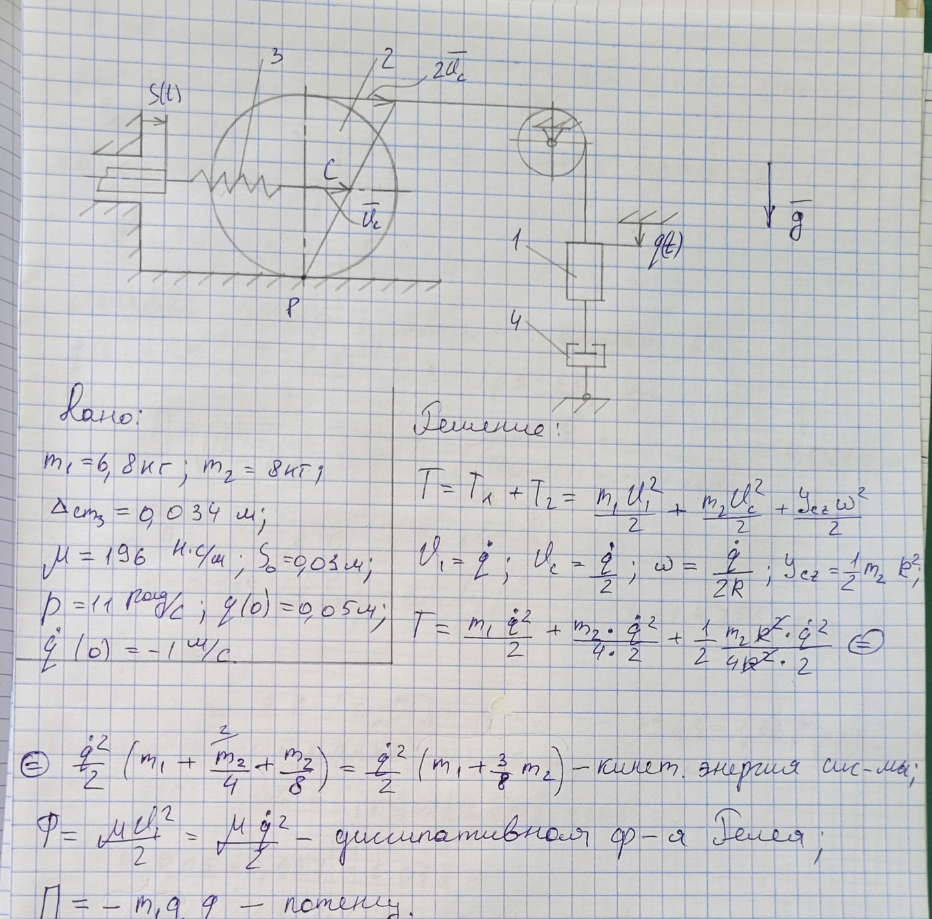 S(t)
3
2
2v̄c
C
v̄c
P
1
q(t)
4
ḡ
Дано:
m₁ = 6,8 кг; m₂ = 8 кг;
Δст₃ = 0,034 м;
μ = 196 Н·с/м; S₀ = 0,03 м;
p = 11 рад/с; q(0) = 0,05 м;
q̇(0) = -1 м/с.
Решение:
T = T₁ + T₂ = m₁v₁²/2 + m₂v_c²/2 + J_cz ω²/2
v₁ = q̇; v_c = q̇/2; ω = q̇/2R; J_cz = 1/2 m₂ R²;
T = m₁q̇²/2 + m₂·q̇²/4·2 + 1/2 m₂R²·q̇²/4R²·2 ⊜
⊜ q̇²/2 (m₁ + m₂/4 + m₂/8) = q̇²/2 (m₁ + 3/8 m₂) – кинет. энергия сис-мы;
2
Ф = μv₁²/2 = μq̇²/2 – диссипативная ф-я Релея;
П = - m₁g q – потенц.